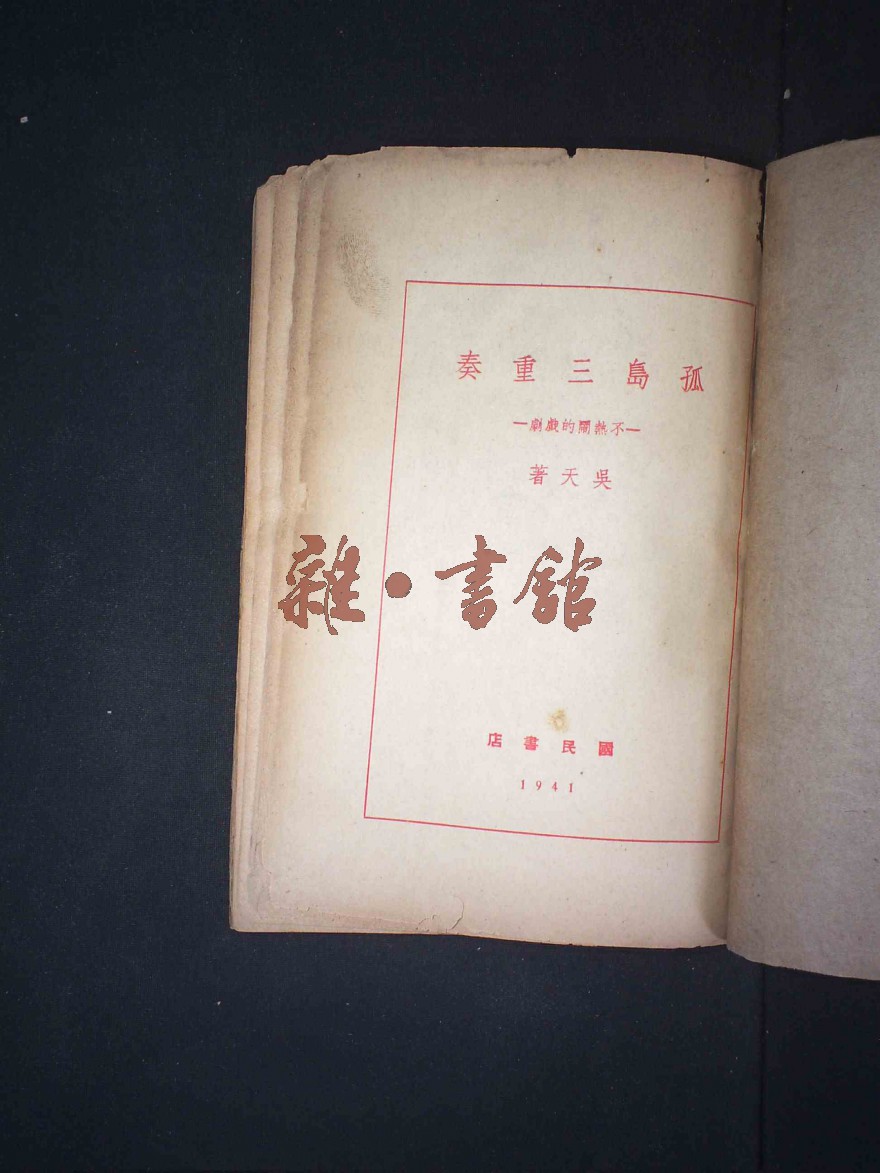 孤島三重奏
—不熱鬧的戲劇—
吳天著
雜•書館
國民書店
1941